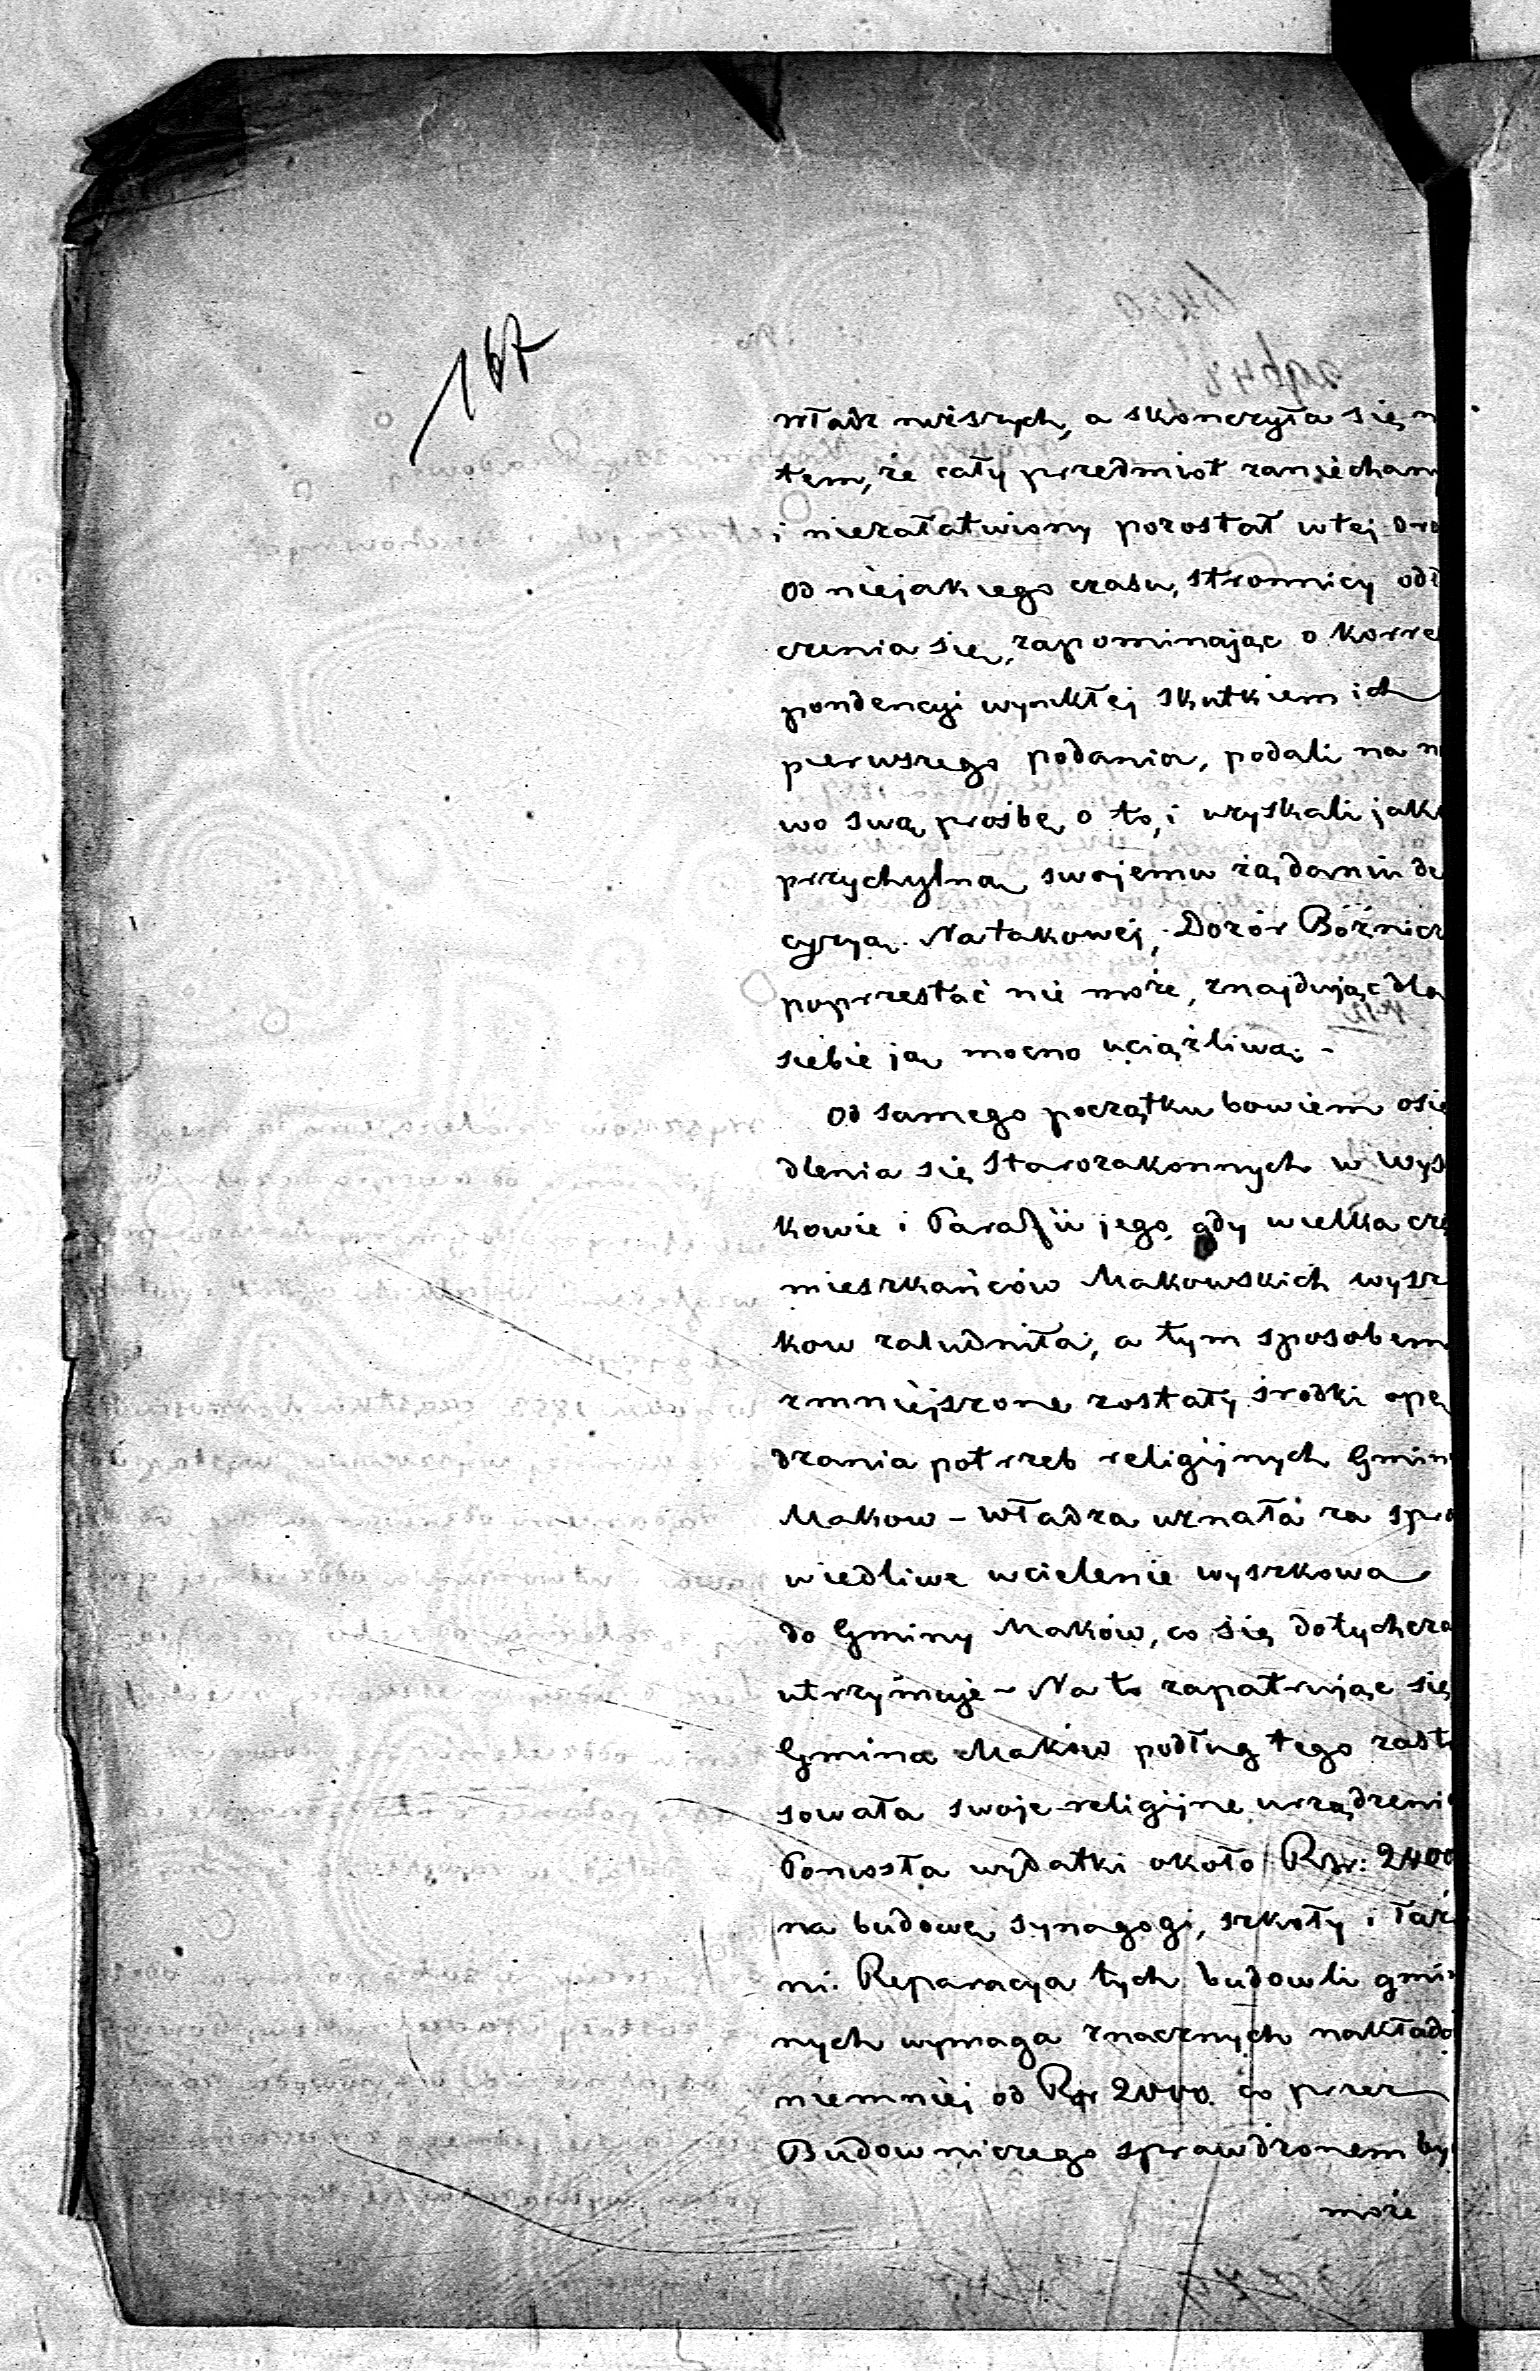 167
władz niższych, a skonczyła się n
tem, że cały przedmiot zaniechany
i niezałatwiony pozostał w tej dro
Od niejakiego czasu, stronnicy odł
czenia się, zapominając o korres
pondencyi wynikłej skutkiem ich
pierwszego podania, podali na no
wo swą prośbę o to, i uzyskali jako
przychylną swojemu żądaniu de
cyzyą. Na takowej, Dozór Bóźnicz
poprzestać nie może, znajdując dla
siebie ją mocno uciążliwą. -
Od samego początku bowiem osie
dlenia się Starozakonnych w Wysz
kowie i Parafii jego, gdy wielka czę
mieszkańców Makowskich Wysz
kow zaludniła, a tym sposobem
zmniejszone zostały środki opę
dzania potrzeb religijnych Gminy
Makow - Władza uznała za spra
wiedliwe wcielenie Wyszkowa
do Gminy Maków, co się dotychcza
utrzymuje - Na to zapatrując się
Gmina Maków podług tego zasto
sowała swoje religijne urządzenia
Poniosła wydatki około Rsr. 2400
na budowę synagogi, szkoły i łaź
ni. Reparacya tych budowli gmin
nych wymaga znacznych nakładó
niemniej od Rsr 2000. co przez
Budowniczego sprawdzonem by
może